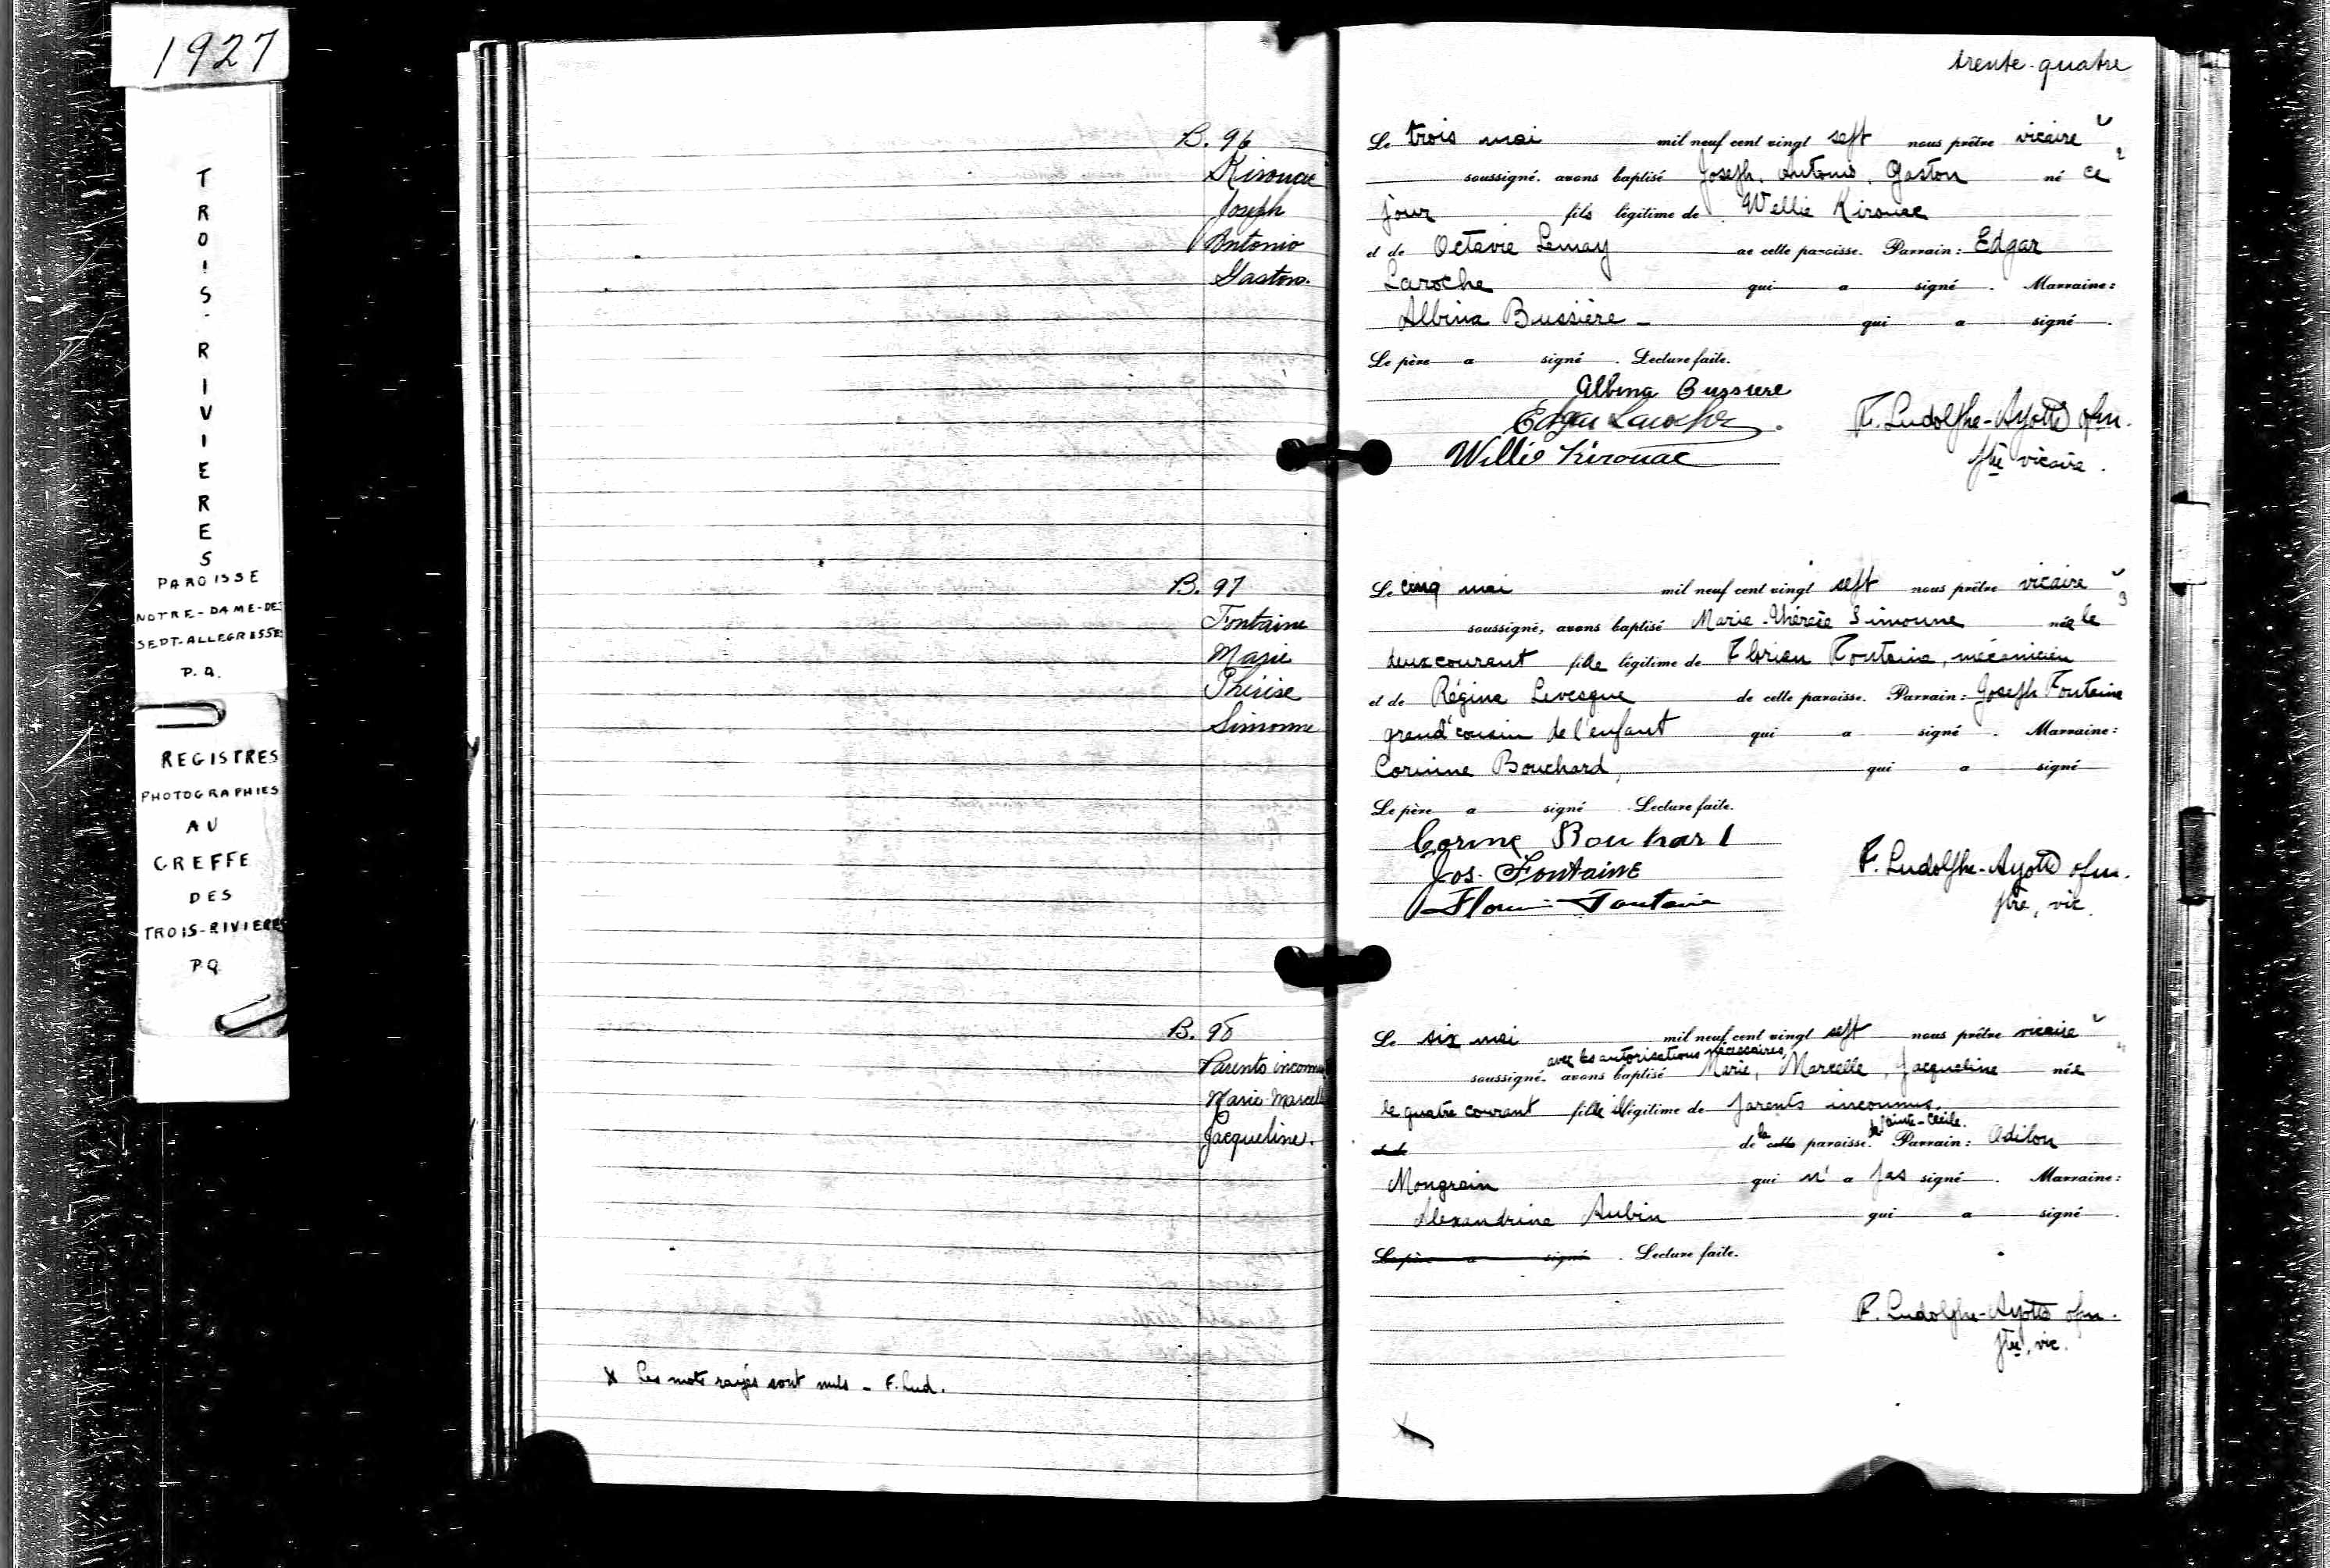 1927
TROIS-RIVIERES
PAROISSE
NOTRE-DAME-DES
SEPT-ALLEGRESSES
P.Q.
REGISTRES
PHOTOGRAPHIES
AU
GREFFE
DES
TROIS-RIVIERES
P.Q
B. 96
Kirouac
Joseph
Antonio
Gaston.
B. 97
Fontaine
Marie
Thérèse
Simonne
B. 98
Parents inconnus
Marie-Marcelle
Jacqueline.
x Les mots rayés sont nuls - F. Lud.
trente-quatre
Le trois mai mil neuf cent vingt sept nous prêtre vicaire
soussigné. avons baptisé Joseph, Antonio, Gaston né ce
jour fils légitime de Wellie Kirouac
et de Octavie Lemay de cette paroisse. Parrain: Edgar
Laroche qui a signé. Marraine:
Albina Bussière - qui a signé.
Le père a signé. Lecture faite.
Albina Bussiere
Edgar Laroche
Willie Kirouac
F. Ludolphe-Ayotte ofm.
ptre vicaire.
Le cinq mai mil neuf cent vingt sept nous prêtre vicaire
soussigné, avons baptisé Marie-Thérèse Simonne née le
deux courant fille légitime de Florian Fontaine, mécanicien
et de Régina Levesque de cette paroisse. Parrain: Joseph Fontaine
grand'cousin de l'enfant qui a signé. Marraine:
Corinne Bouchard, qui a signé
Le père a signé. Lecture faite.
Corine Bouchard
Jos. Fontaine
Florian Fontaine
F. Ludolphe-Ayotte ofm.
ptre, vic.
Le six mai mil neuf cent vingt sept nous prêtre vicaire
avec les autorisations nécessaires,
soussigné. avons baptisé Marie, Marcelle, Jacqueline née
le quatre courant fille illégitime de parents inconnus.
et de de la cette paroisse. de Sainte-Cécile. Parrain: Odilon
Mongrain qui n'a pas signé. Marraine:
Alexandrine Aubin qui a signé.
Le père a signé. Lecture faite.
F. Ludolphe-Ayotte ofm.
ptre, vic.